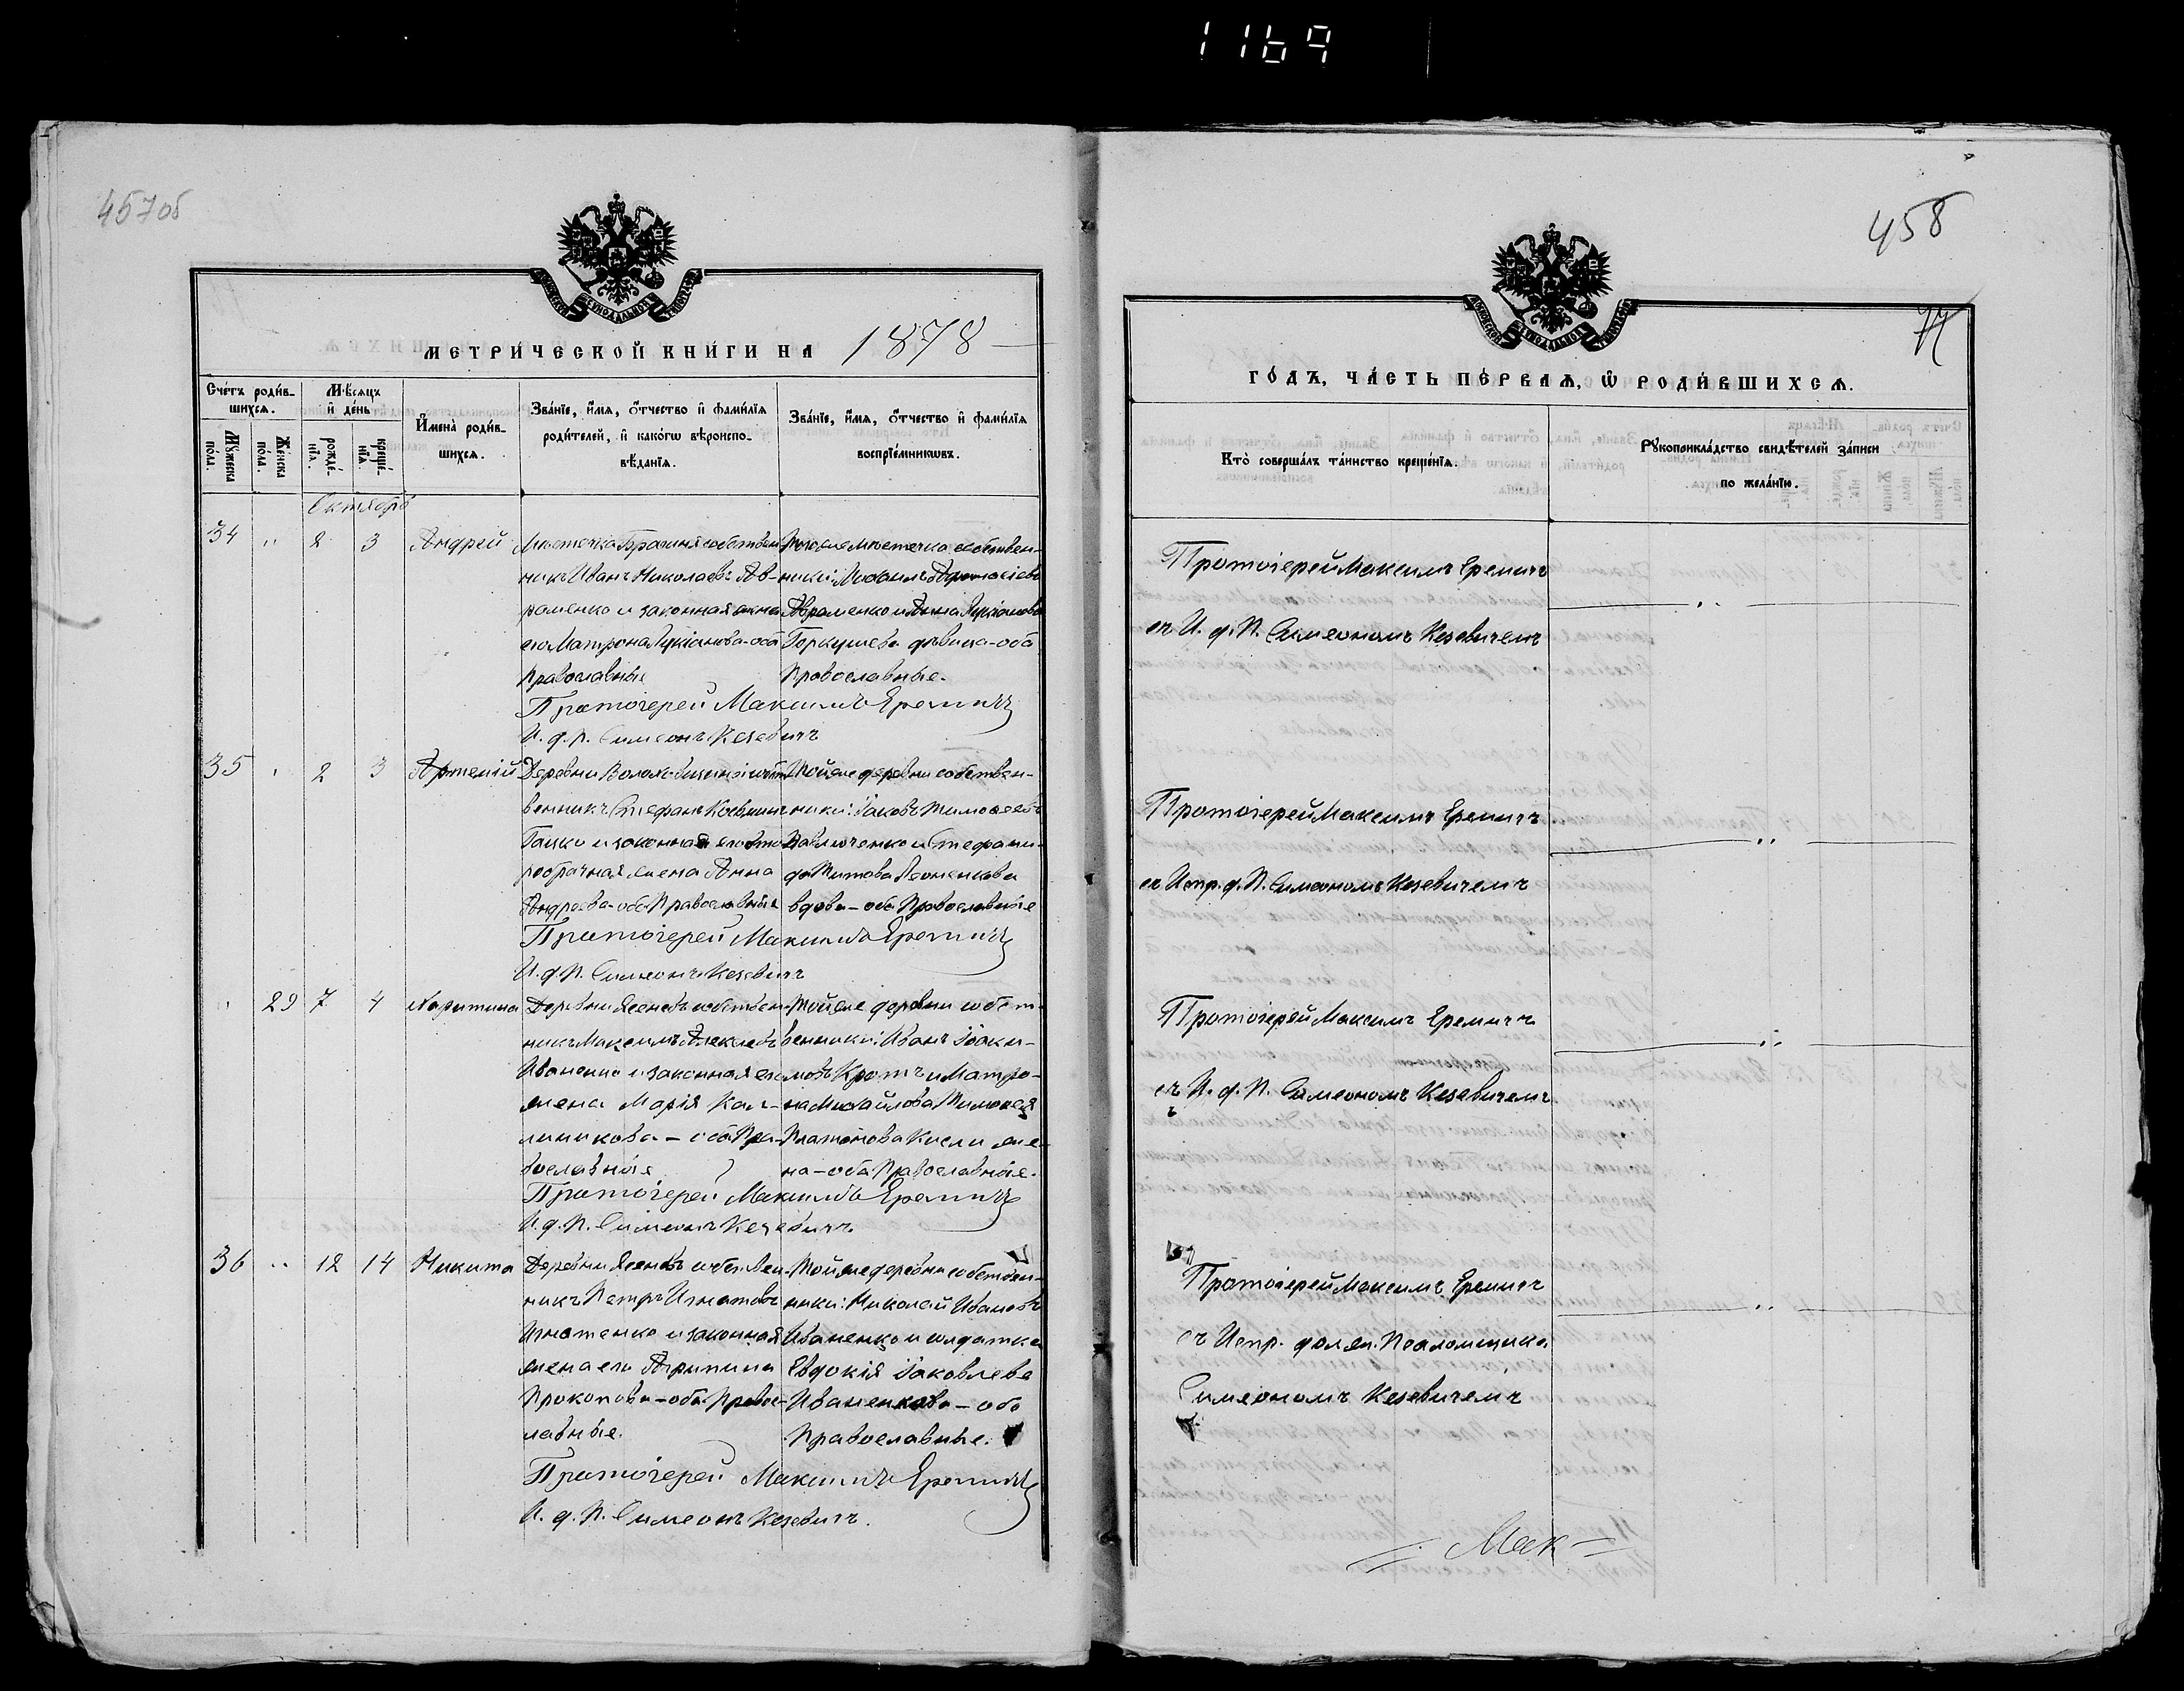 1169
457 об
МЕТРИ́ЧЕСКОЙ КНИ́ГИ НА 1878
Сче́тъ роди́в-
шихсѧ.
Мѣ́сѧцъ
и҆ де́нь
Мꙋ́жеска
по́ла.
Же́нска
по́ла.
рожде́-
нїѧ.
креще́-
нїѧ.
И҆мена̀ роди́в-
шихсѧ.
Зва́нїе, и҆́мѧ, ѻ҆́тчество и҆ фами́лїѧ
роди́телей, и҆ како́гѡ вѣроиспо-
вѣ́данїѧ.
Зва́нїе, и҆́мѧ, ѻ҆́тчество и҆ фами́лїѧ
воспрїе́мникѡвъ.
Октябрь
34 „ 2 3 Андрей
Мѣстечка Брагиня собствен-
никъ Иванъ Николаевъ Ав-
раменко и законная жена
его Матрона Лукіанова - оба
Православные
Тогоже мѣстечка собствен-
ники: Михаилъ
Авраменко и Анна Лукіанова
девица - оба
Православные.
Протоіерей Максимъ Еремичъ
И. д. П. Симеонъ Кезевичъ
35 „ 2 3 Артемій
Деревни
венникъ Стефанъ
Гацко и законная его вто-
робрачная жена Анна
Андреева - оба Православные
Тойже деревни собствен-
ники: Іаковъ Тимоѳеевъ
Павлюченко и Стефани-
да Титова
вдова - оба Православные
Протоіерей Максимъ Еремичъ
И. д. П. Симеонъ Кезевичъ
„ 29 7 4 Харитина
Деревни Ясеновъ собствен-
никъ Максимъ Алексеевъ
Иваненко и законная его
жена Марія Кал-
линикова - оба Пра-
вославные
Тойже деревни собст-
венники: Иванъ Іоаки-
мовъ Кротъ и Матро-
на Михайлова Тимоѳея
Платонова Кисли же-
на - оба Православные.
Протоіерей Максимъ Еремичъ
И. д. П. Симеонъ Кезевичъ
36 „ 12 14 Никита
Деревни Ясеновъ собствен-
никъ Петръ Игнатовъ
Игнатенко и законная
жена его Агрипина
Прокопова - оба Правос-
лавные.
Тойже деревни собствен-
ники: Николай Ивановъ
Иваненко и солдатка
Евдокія Іаковлева
Иваненкова - оба
Православные.
Протоіерей Максимъ Еремичъ
И. д. П. Симеонъ Кезевичъ.
458
77
ГО́ДЪ, ЧА́СТЬ ПЕ́РВАѦ, Ѡ҆ РОДИ́ВШИХСѦ.
Кто̀ соверша́лъ та́инство креще́нїѧ.
Рꙋкоприкла́дство свидѣ́телей за́писи
по жела́нїю.
Протоіерей Максимъ Еремичъ
съ И. д. П. Симеономъ Кезевичемъ
Протоіерей Максимъ Еремичъ
съ Испр. д. П. Симеономъ Кезевичемъ
Протоіерей Максимъ Еремичъ
съ И. д. П. Симеономъ Кезевичемъ
Протоіерей Максимъ Еремичъ
съ Испр. долж. Псаломщика
Симеономъ Кезевичемъ
Мак